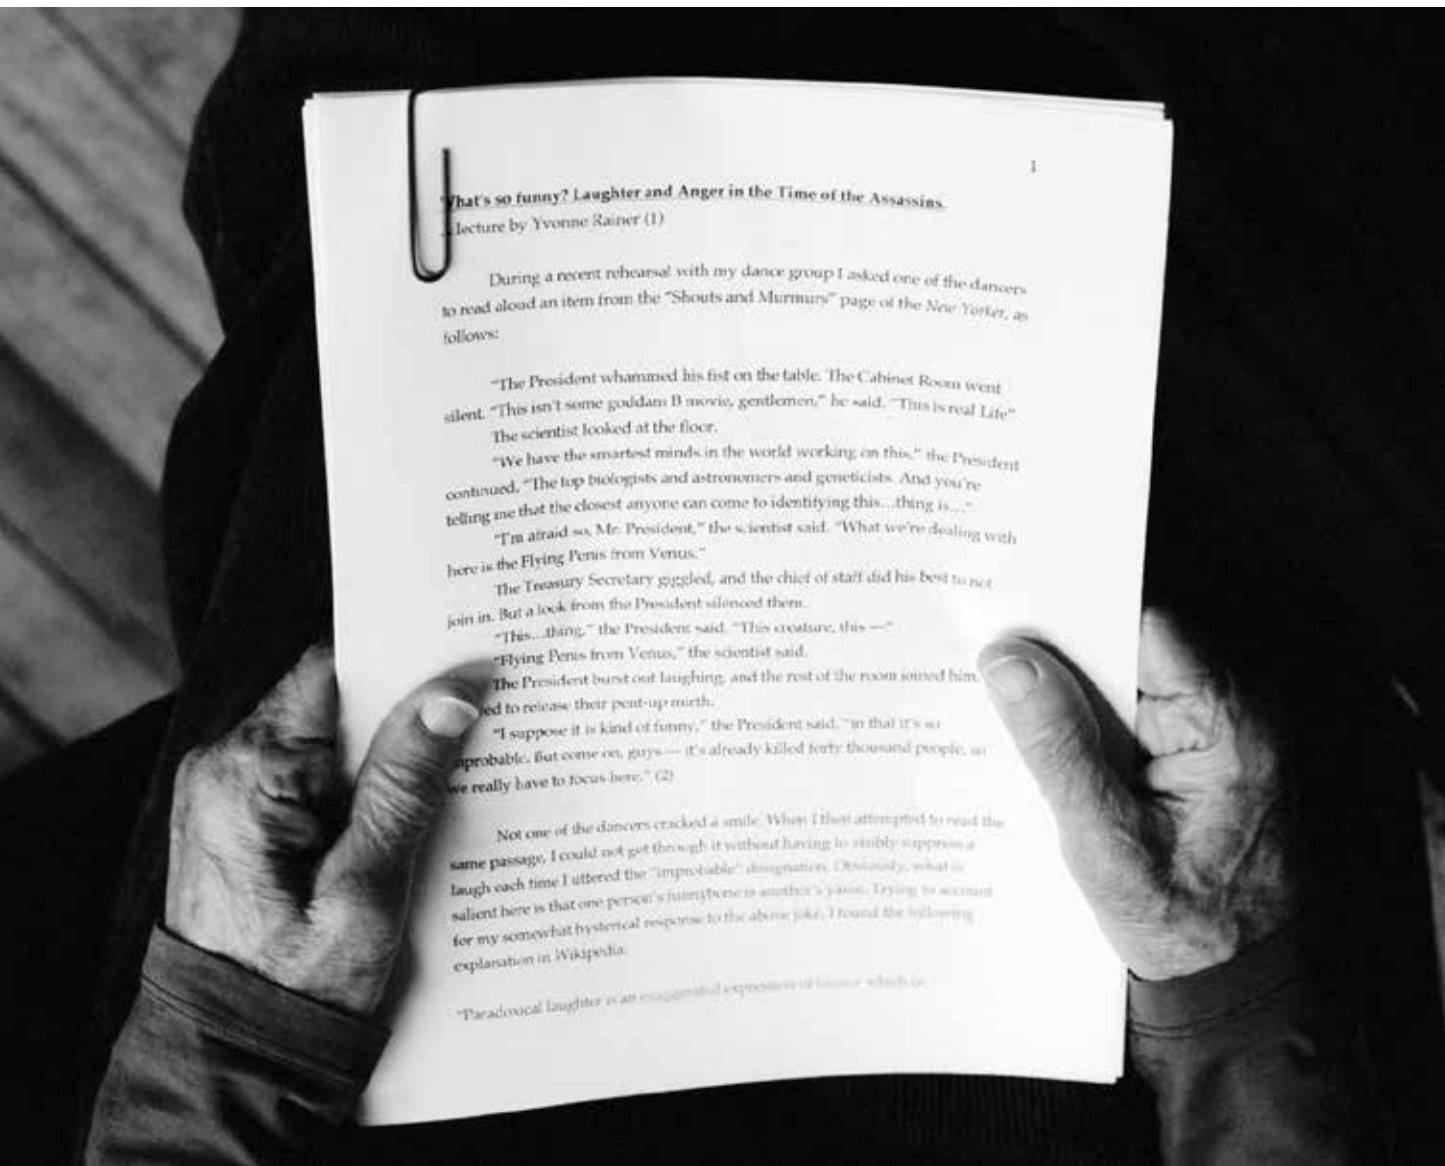 1
What's so funny? Laughter and Anger in the Time of the Assassins
lecture by Yvonne Rainer (1)
During a recent rehearsal with my dance group I asked one of the dancers
to read aloud an item from the "Shouts and Murmurs" page of the New Yorker, as
follows:
"The President whammed his fist on the table. The Cabinet Room went
silent. "This isn't some goddam B movie, gentlemen," he said. "This is real Life"
The scientist looked at the floor.
"We have the smartest minds in the world working on this," the President
continued. "The top biologists and astronomers and geneticists. And you're
telling me that the closest anyone can come to identifying this…thing is…"
"I'm afraid so, Mr. President," the scientist said. "What we're dealing with
here is the Flying Penis from Venus."
The Treasury Secretary giggled, and the chief of staff did his best to not
join in. But a look from the President silenced them.
"This…thing," the President said. "This creature, this —"
"Flying Penis from Venus," the scientist said.
The President burst out laughing, and the rest of the room joined him,
ed to release their pent-up mirth.
"I suppose it is kind of funny," the President said, "in that it's so
mprobable. But come on, guys — it's already killed forty thousand people, so
we really have to focus here." (2)
Not one of the dancers cracked a smile. When I then attempted to read the
same passage, I could not get through it without having to visibly suppress a
laugh each time I uttered the "improbable" designation. Obviously, what is
salient here is that one person's funnybone is another's yawn. Trying to account
for my somewhat hysterical response to the above joke, I found the following
explanation in Wikipedia:
"Paradoxical laughter is an exaggerated expression of humor which is